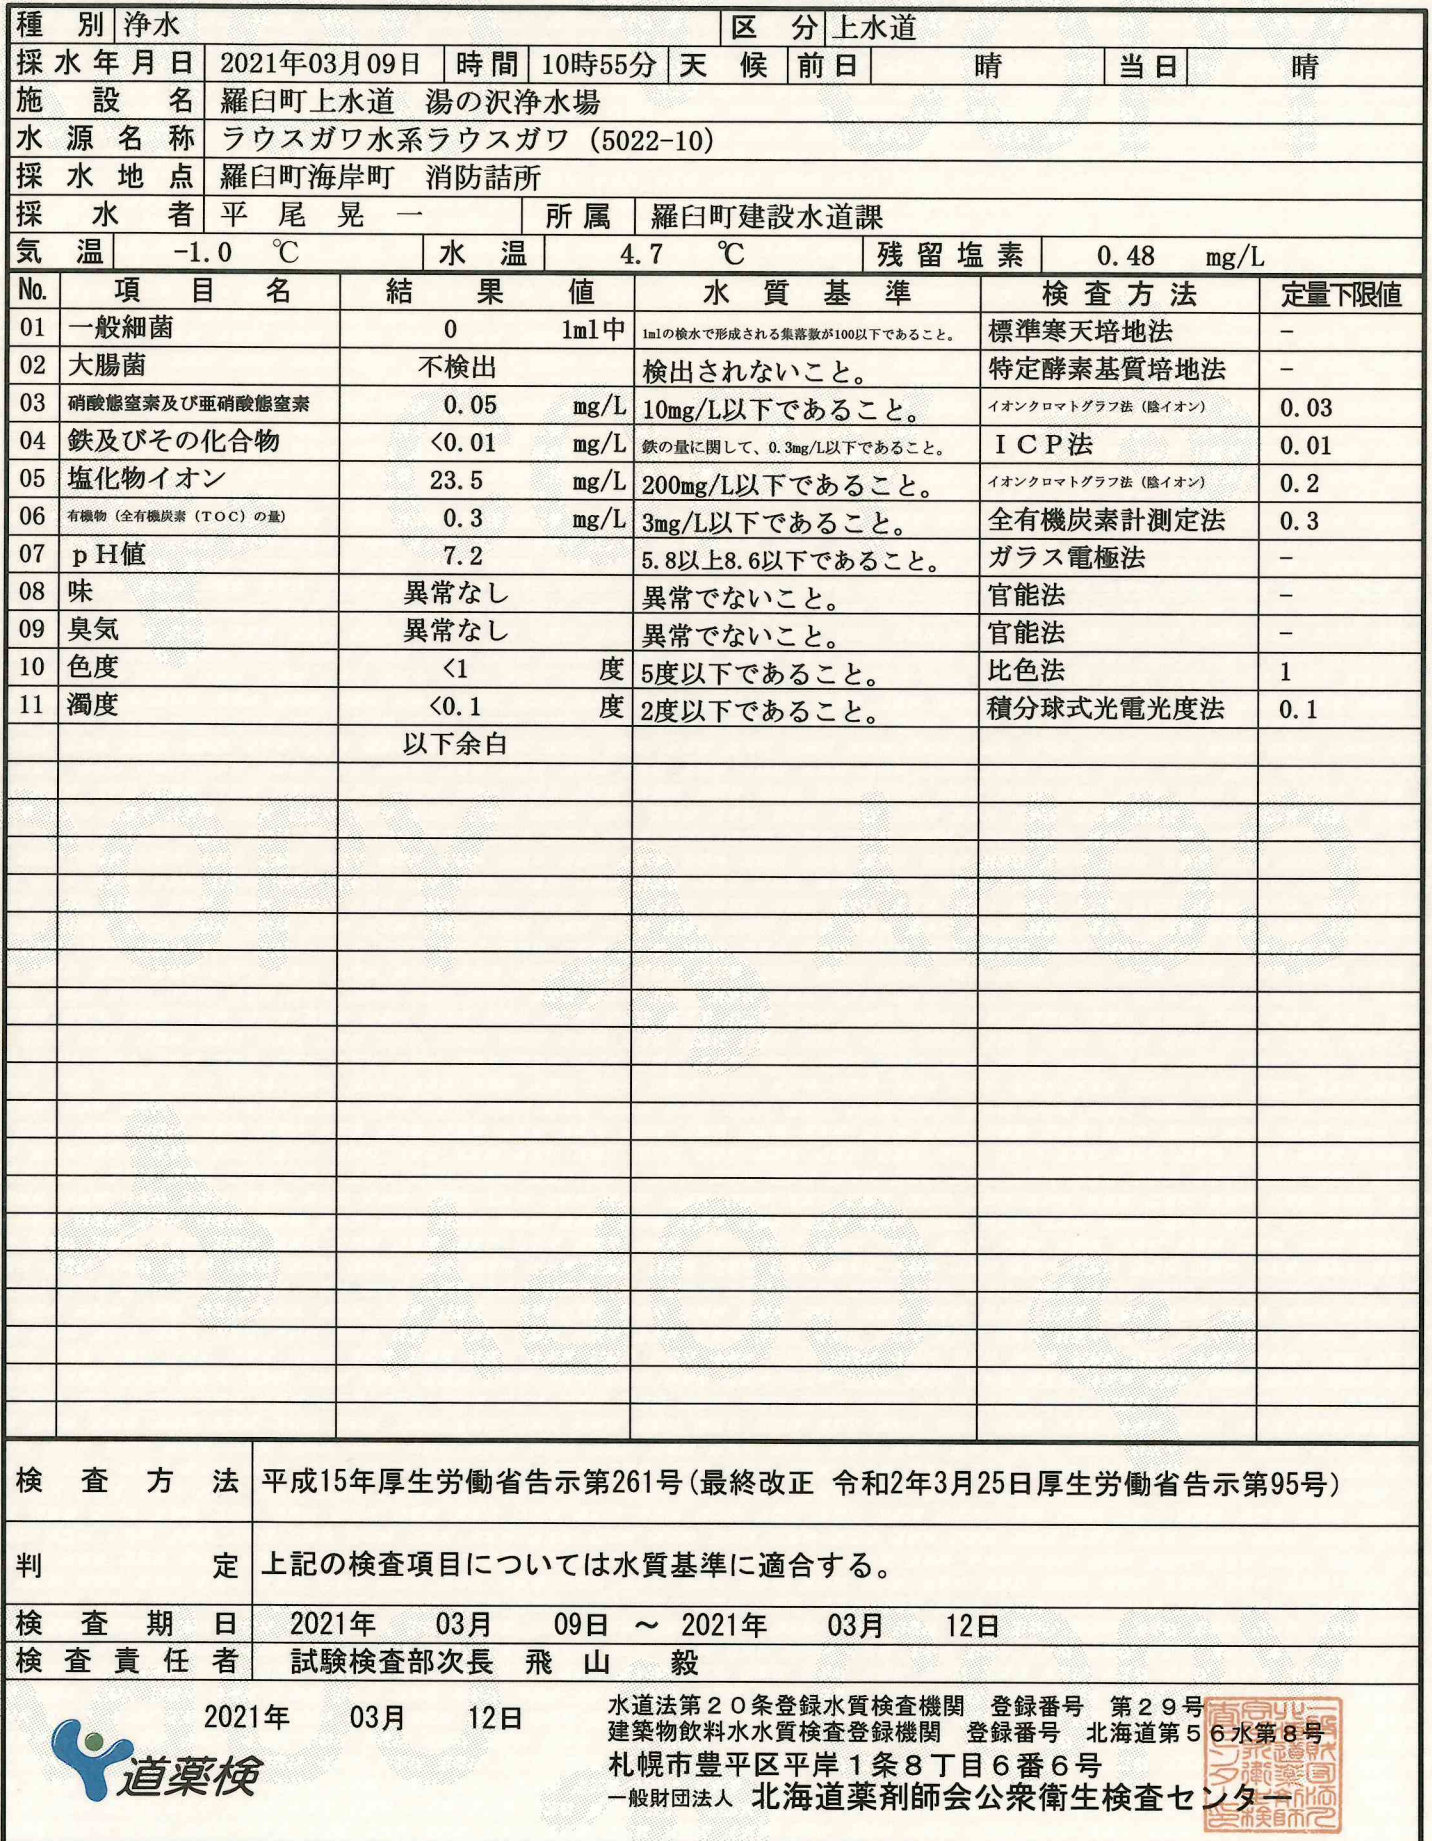 種別 浄水 区分 上水道
採水年月日 2021年03月09日 時間 10時55分 天候 前日 晴 当日 晴
施設名 羅臼町上水道 湯の沢浄水場
水源名称 ラウスガワ水系ラウスガワ (5022-10)
採水地点 羅臼町海岸町 消防詰所
採水者 平尾晃一 所属 羅臼町建設水道課
気温 -1.0 ℃ 水温 4.7 ℃ 残留塩素 0.48 mg/L
No. 項目名 結果値 水質基準 検査方法 定量下限値
01 一般細菌 0 1ml中 1mlの検水で形成される集落数が100以下であること。 標準寒天培地法 -
02 大腸菌 不検出 検出されないこと。 特定酵素基質培地法 -
03 硝酸態窒素及び亜硝酸態窒素 0.05 mg/L 10mg/L以下であること。 イオンクロマトグラフ法(陰イオン) 0.03
04 鉄及びその化合物 <0.01 mg/L 鉄の量に関して、0.3mg/L以下であること。 ICP法 0.01
05 塩化物イオン 23.5 mg/L 200mg/L以下であること。 イオンクロマトグラフ法(陰イオン) 0.2
06 有機物(全有機炭素(TOC)の量) 0.3 mg/L 3mg/L以下であること。 全有機炭素計測定法 0.3
07 pH値 7.2 5.8以上8.6以下であること。 ガラス電極法 -
08 味 異常なし 異常でないこと。 官能法 -
09 臭気 異常なし 異常でないこと。 官能法 -
10 色度 <1 度 5度以下であること。 比色法 1
11 濁度 <0.1 度 2度以下であること。 積分球式光電光度法 0.1
以下余白
COPY COPY
COPY
検査方法 平成15年厚生労働省告示第261号(最終改正 令和2年3月25日厚生労働省告示第95号)
判定 上記の検査項目については水質基準に適合する。
検査期日 2021年 03月 09日 ~ 2021年 03月 12日
検査責任者 試験検査部次長 飛山 毅
2021年 03月 12日
水道法第20条登録水質検査機関 登録番号 第29号
建築物飲料水水質検査登録機関 登録番号 北海道第56水第8号
札幌市豊平区平岸1条8丁目6番6号
一般財団法人 北海道薬剤師会公衆衛生検査センター
道薬検